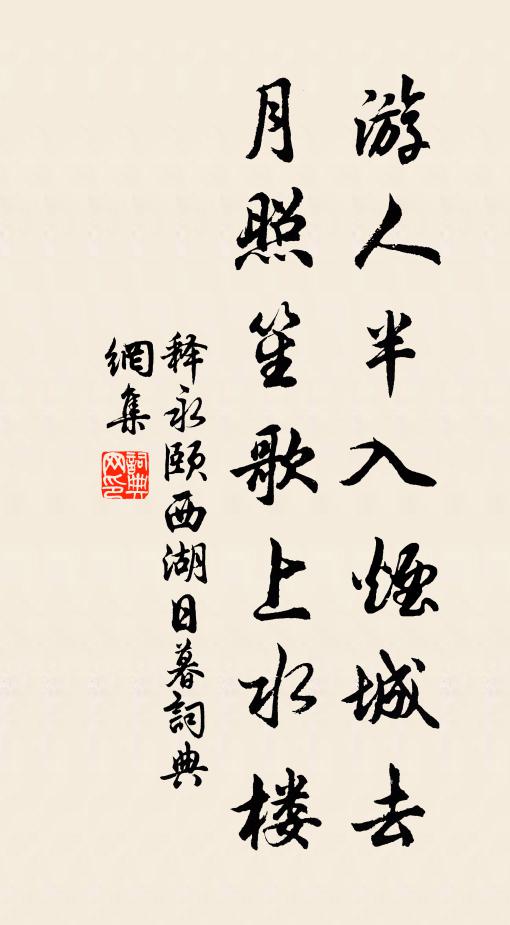 游人半入烟城去
月照笙歌上水楼
释永颐西湖日暮词典
網集
詞典网印